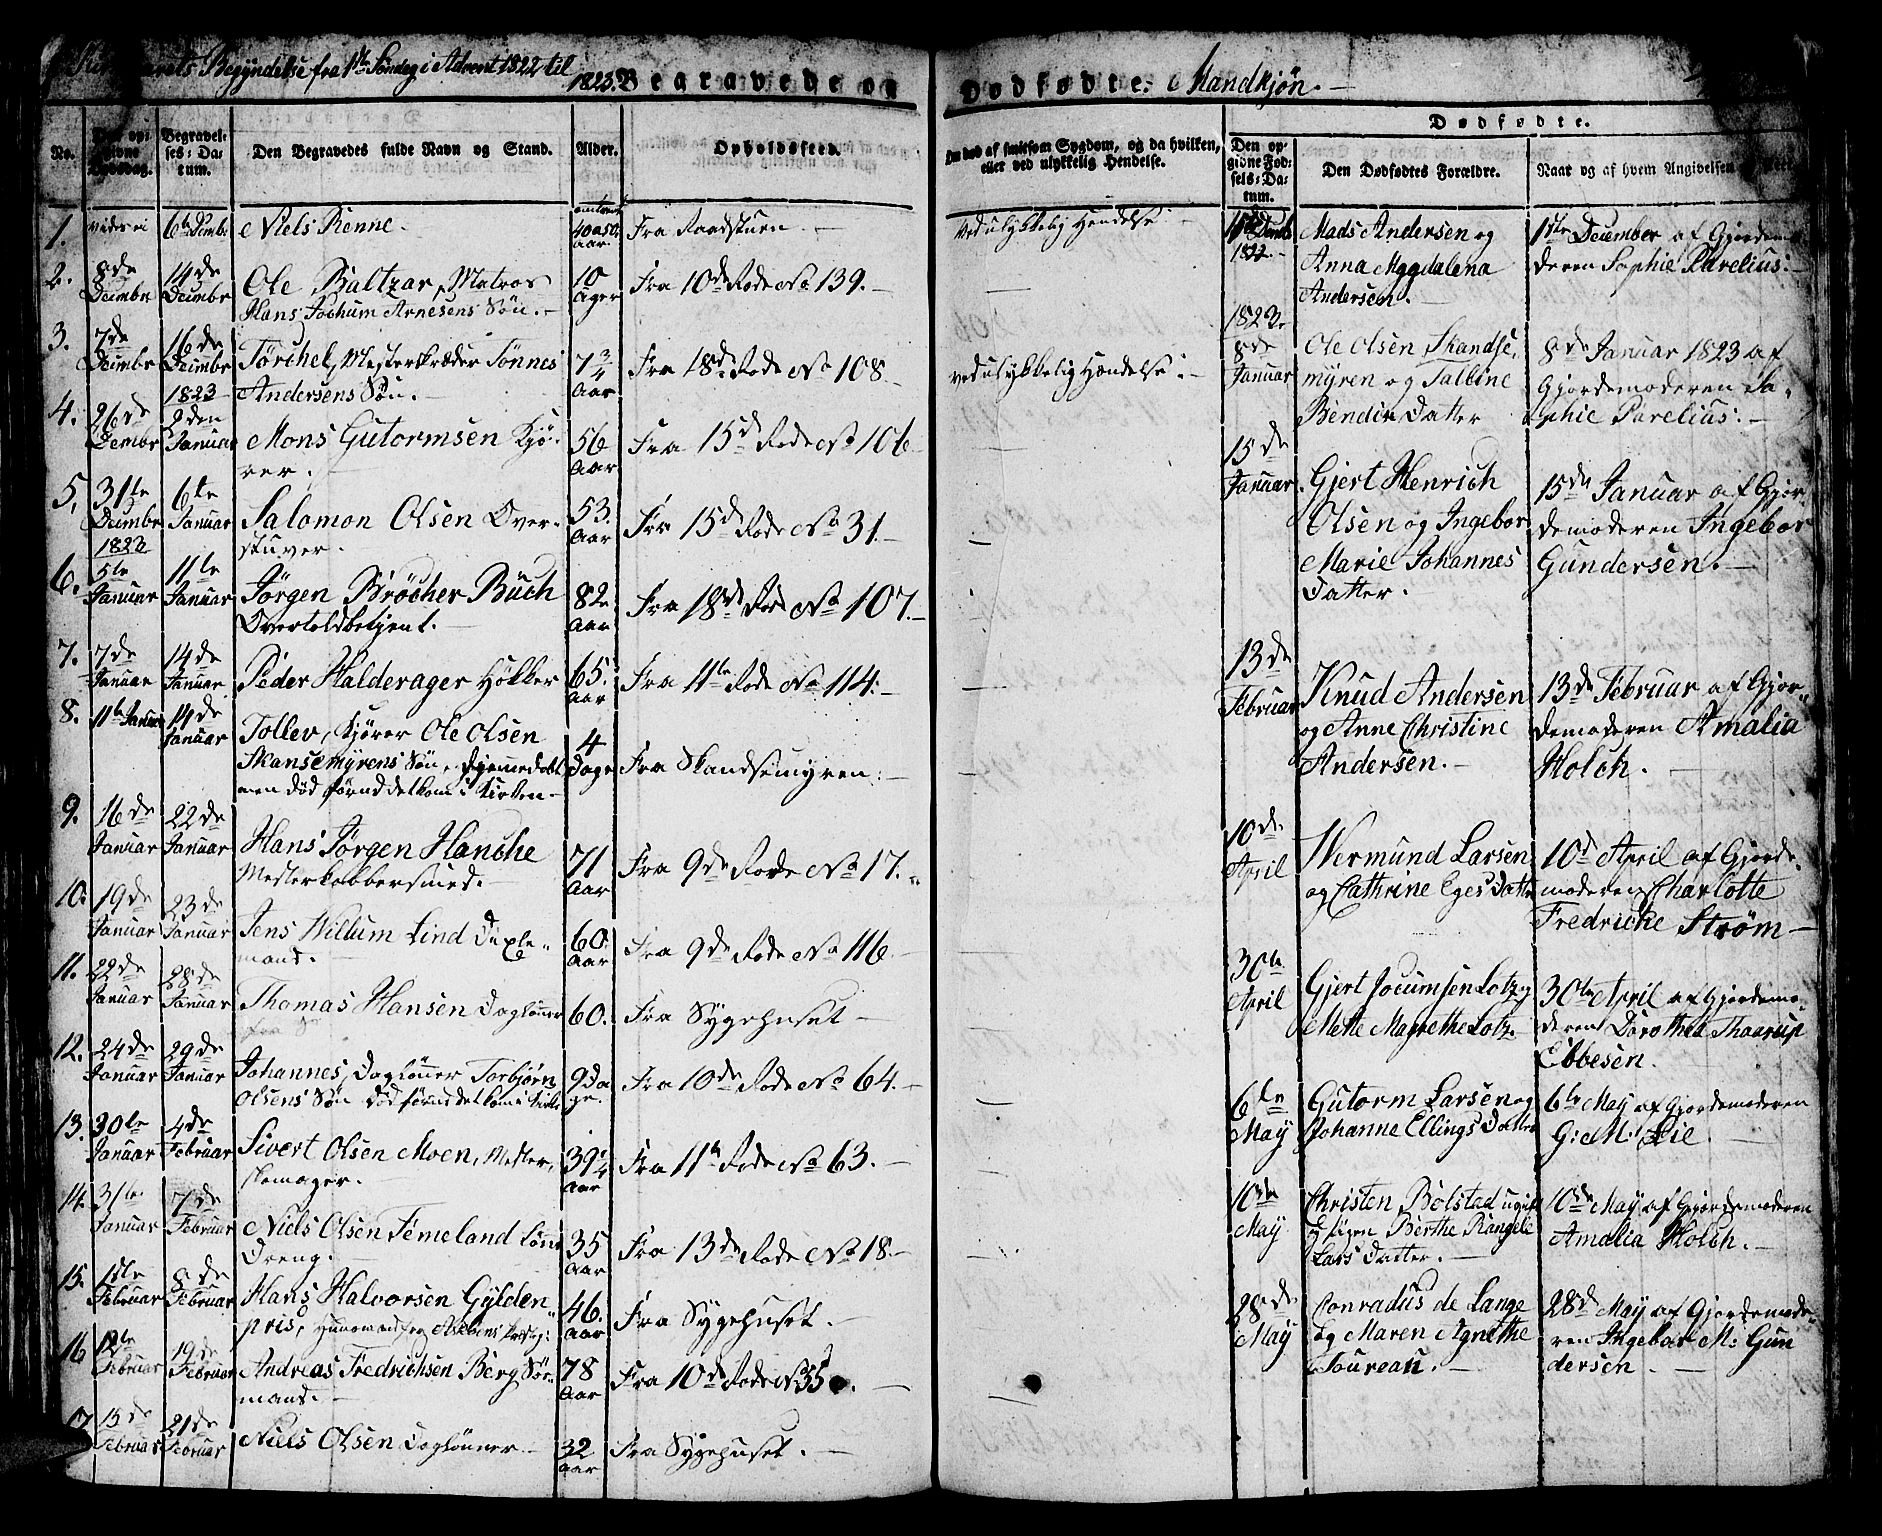 Begyndelse fra 1ste Søndag i Advent 1822 til
1823. Begravede og Dødfødte. Mandkjøn.
No.
Begravel-
ses-Da-
tum.
Den Begravedes fulde Navn og Stand.
Alder.
Opholdssted.
Om død af smitsom Sygdom, og da hvilken,
eller ved ulykkelig Hendelse.
Dødfødte.
Den op-
givne Fød-
sels-Da-
tum.
Den Dødfødtes Forældre.
Naar og af hvem Angivelsen
1. 6te Decembr Niels Renne 40 a 50 Aar Fra Raadstuen ved ulykkelig Hendelse
2. 8de Decembr 14de Decembr Ole Baltzar, Matros
Hans Jochum Arnesens Søn. 10 Uger Fra 10de Rode No 139.
3. 7de Decembr 16de Decembr Törchel, Mesterskræder Tönnes
Andersens Søn. 7 3/4 Aar Fra 18de Rode No 108 ved ulykkelig Hændelse
4. 26de Decembr 1823 2den Januar Mons Gutormsen Kjø-
rer. 56 Aar Fra 15de Rode No 106
5. 31te Decembr 6te Januar Salomon Olsen Over-
stuver. 53. Aar Fra 15de Rode No 31.
6. 1823 5te Januar 11te Januar Jørgen Bröcher Büch
Overtoldbetjent. 82 Aar Fra 18de Rode No 107.
7. 7de Januar 14de Januar Peder Halderager Høkker 65 Aar Fra 11te Rode No 114.
8. 11te Januar 14de Januar Tollev, Kjører Ole Olsen
Skansemyrens Søn, hjemmedøbt
men død förend det kom i Kirken 4 Dage Fra Skandsemyren.
9. 16de Januar 22de Januar Hans Jørgen Hanche
Mesterkobbersmed. 71 Aar Fra 9de Rode No 17.
10. 19de Januar 23de Januar Jens Willum Lind Dixle-
mand. 60 Aar Fra 9de Rode No 116
11. 22de Januar 28de Januar Thomas Hansen Daglønner 60. Fra Sygehuset
12. 24de Januar 29de Januar Johannes, Daglønner Torbjørn
Olsens Søn død förend det kom i Kirke 9 Dage. Fra 10de Rode No 64.
13. 30te Januar 4de Februar Sivert Olsen Moen, Mester
skomager. 39 1/4 Aar Fra 11te Rode No 63.
14. 31te Januar 7de Februar Niels Olsen Femeland
Dreng. 35 Aar Fra 13de Rode No 18.
15. 1ste Februar 8de Februar Hans Halvorsen Gylden
pris, 46. Aar Fra Sygehuset.
16 12te Februar 19de Februar Andreas Fredrichsen Berg Sø-
mand. 78 Aar Fra 10de Rode No 35
17. 15de Februar 21de Februar Niels Olsen Daglønner 32 Aar Fra Sygehuset.
1822. Mads Andersen og
Anna Magdalena
Andersen. 1ste December af Gjordemo-
deren Sophie Parelius.
1823. 8de Januar Ole Olsen Skandse-
myren og Talbine
Bendix Datter 8de Januar 1823 af
Gjordemoderen So-
phie Parelius.
15de Januar Gjert Henrich
Olsen og Ingebor
Marie Johannes
Datter. 15de Januar af Gjor-
demoderen Ingebor
Gundersen.
13de Februar Knud Andersen
og Anne Christine
Andersen. 13de Februar af Gjor-
demoderen Amalia
Holch.
10de April Wermund Larsen
og Cathrine Eges Datter 10de April af Gjorde-
moderen Charlotte
Fredricke Strøm
30te April Gjert Jocumsen Lotz og
Mette Magrethe Lotz. 30te April af Gjordemo-
deren Dorothea Thaarup
Ebbesen.
6te May Gutorm Larsen og
Johanne Ellings Datter 6te May af Gjordemoderen
G: M: Lie
10de May Christen Bolstad ugift
og Pigen Berthe Rangele
Lars Datter. 10de May af Gjordemoderen
Amalia Holch.
28de May Conradus de Lange
og Maren Agnethe
Toureau. 28de May af Gjordemode-
ren Ingebor M: Gun
dersen